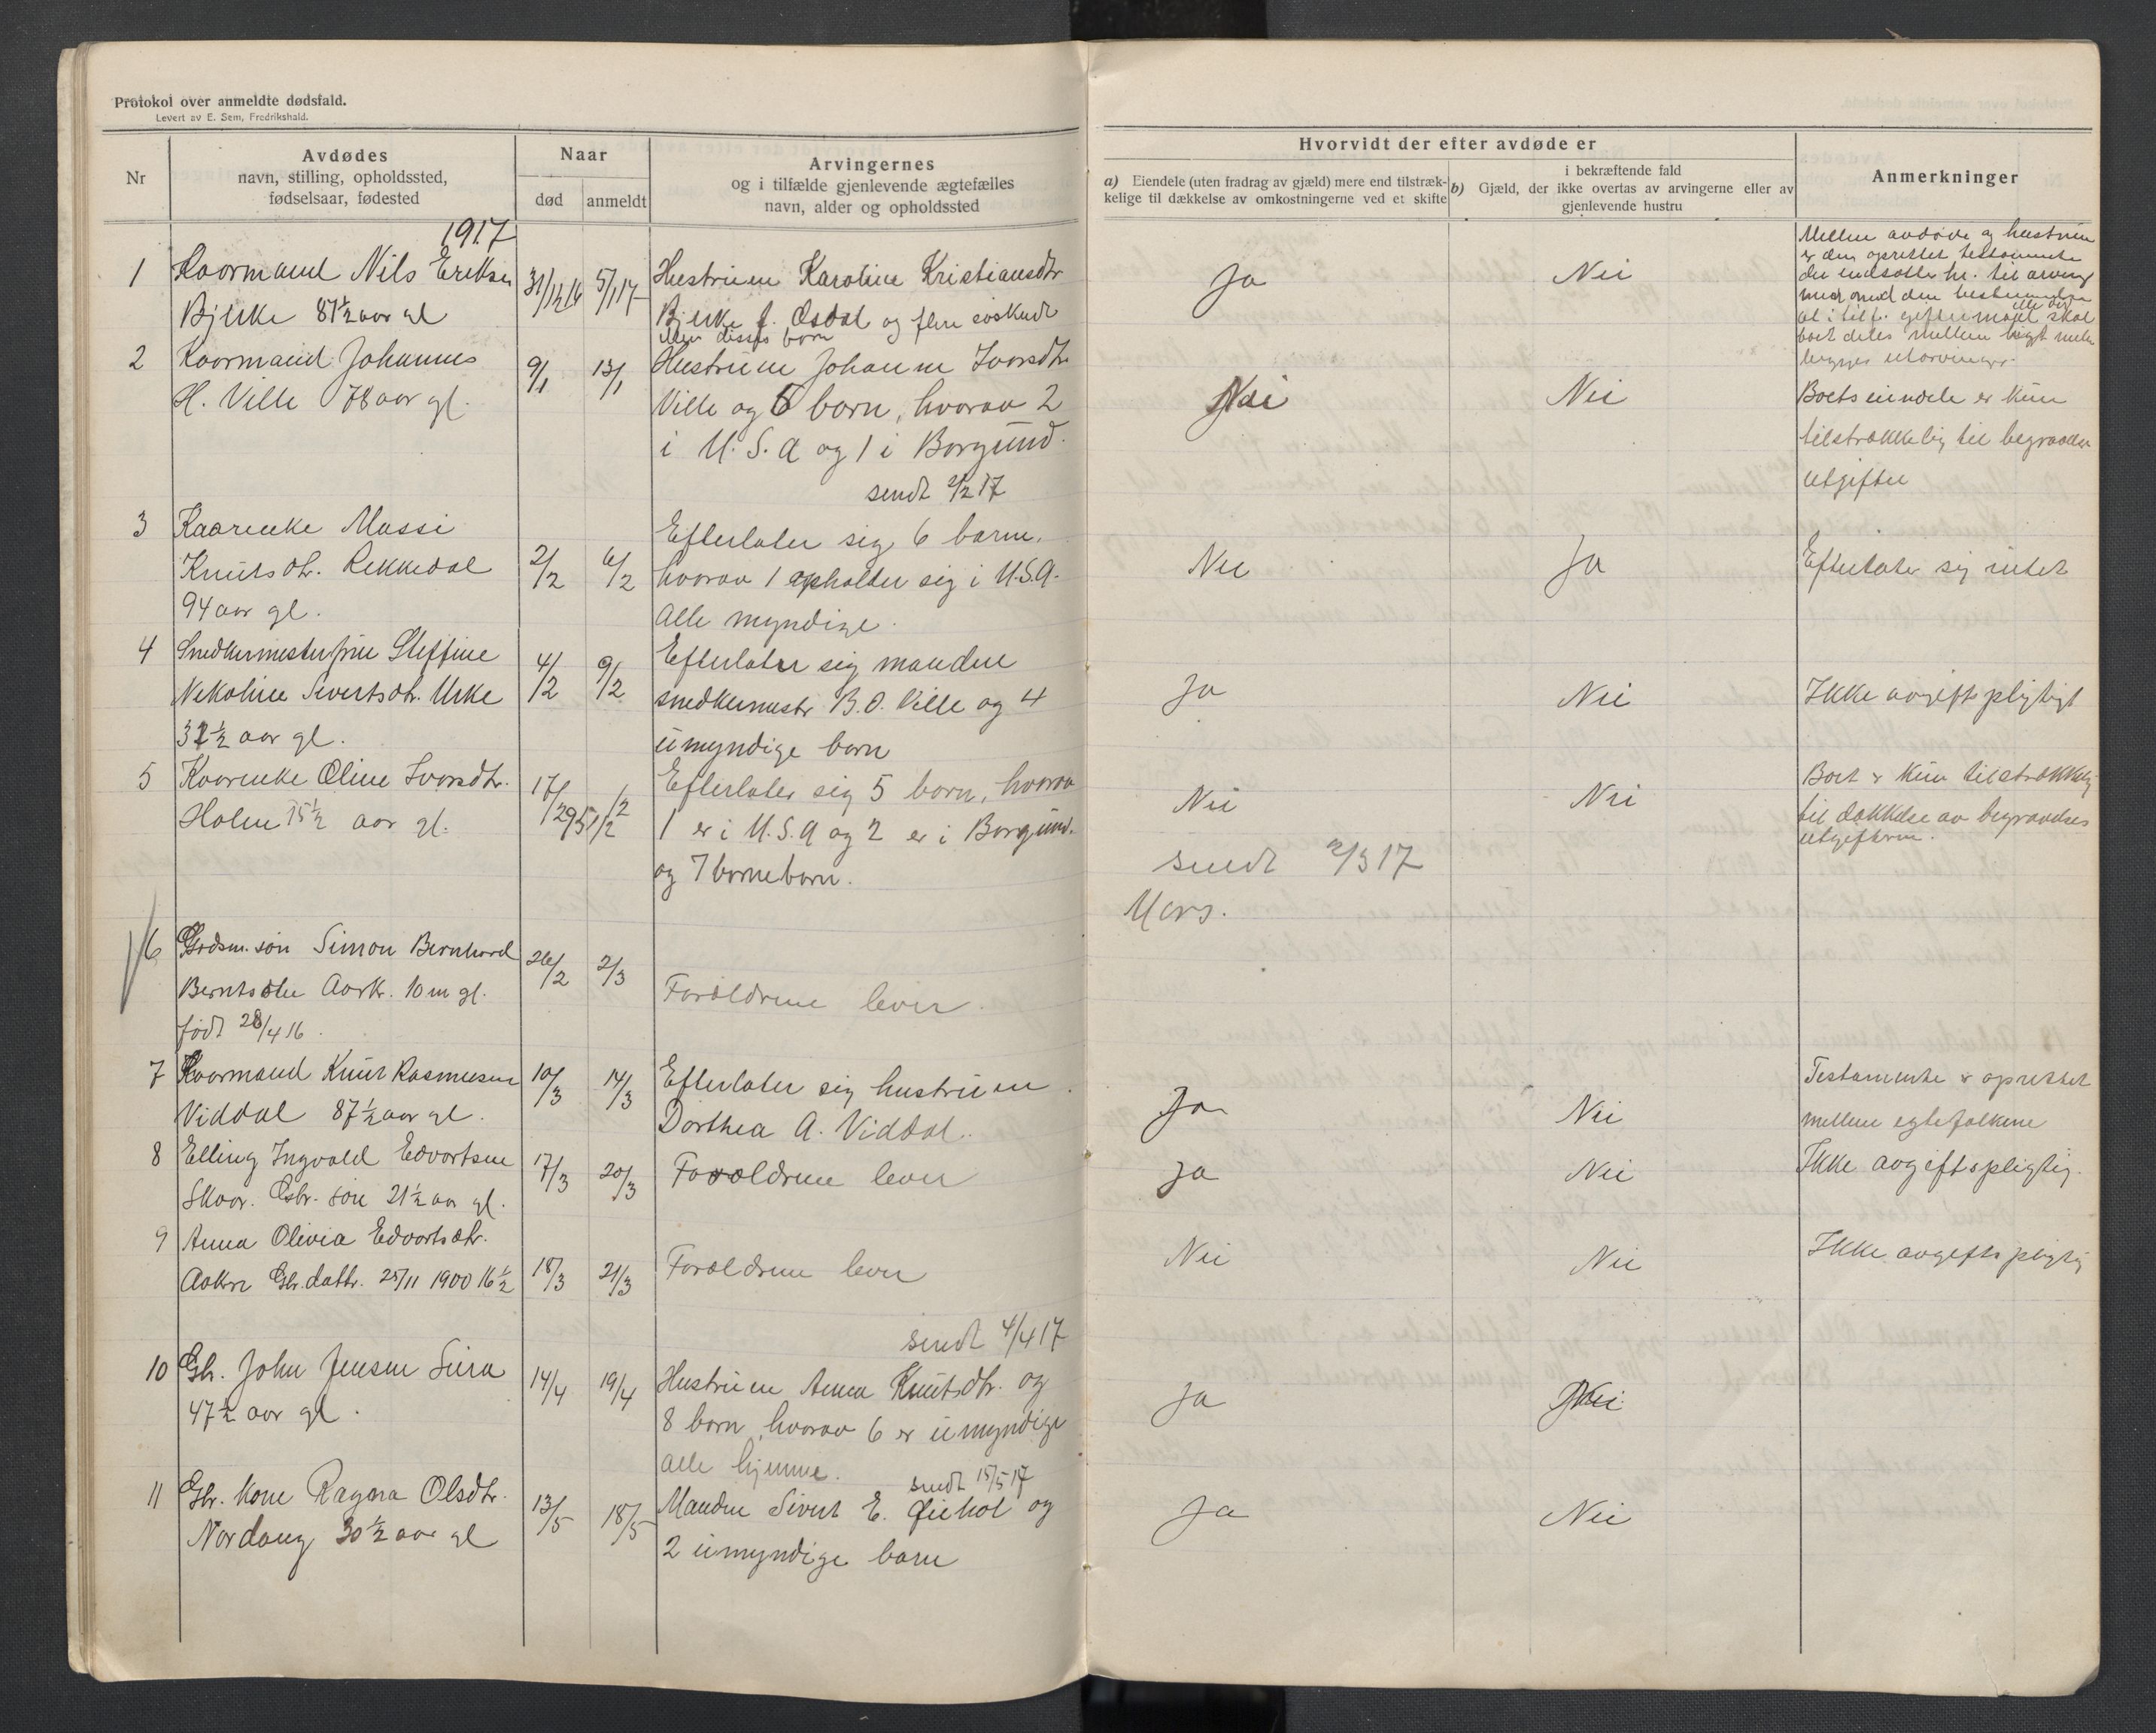 Protokol over anmeldte dødsfald.
Levert av E. Sem, Fredrikshald.
Nr
Avdødes
navn, stilling, opholdssted,
fødselsaar, fødested
Naar
død
anmeldt
Arvingernes
og i tilfælde gjenlevende ægtefælles
navn, alder og opholdssted
Hvorvidt der efter avdøde er
a) Eiendele (uten fradrag av gjæld) mere end tilstræk-
kelige til dækkelse av omkostningerne ved et skifte
i bekræftende fald
b) Gjæld, der ikke overtas av arvingerne eller av
gjenlevende hustru
Anmerkninger
1917
1 Kaarmand Nils Eriksen
Bjerke 87½ aar gl
31/12 16 5/1 17
Hustruen Karoline Kristiansdtr
Bjerke f. Øsdal og flere søskend
eller disses børn
Ja
Nei
Mellem avdøde og hustruen
er den oprettet testamente
der indsætter hr. til arving
med den bestemmelse
at i tilf. giftermaal skal
boet deles mellem
begges utarvinger
2 Kaarmand Johannes
H. Ville 78 aar gl.
9/1 13/1
Hustruen Johanne Ivarsdtr
Ville og 6 børn, hvorav 2
i U.S.A og 1 i Borgund.
sendt 2/2 17
Nei
Nei
Boets eiendele er kun
tilstrækkelig til begravelses
utgifter
3 Kaarenke Massi
Knutsdtr. Rekkedal
94 aar gl.
2/2 6/2
Efterlater sig 6 børn,
hvorav 1 opholder sig i U.S.A.
Alle myndige.
Nei
Ja
Efterlater sig intet
4 Snedkermesterfrue Steffine
Nekoline Sivertsdtr. Urke
32½ aar gl.
4/2 9/2
Efterlater sig manden
snedkermestr B.O. Ville og 4
umyndige børn
Ja
Nei
Ikke avgiftspligtigt
5 Kaarenke Oline Ivarsdtr.
Holen 75½ aar gl.
17/2
Efterlater sig 5 børn, hvorav
1 er i U.S.A og 2 er i Borgund.
og 7 børnebørn.
Nei
Nei
Boet er kun tilstrækkelig
til dækkelse av begravelses
utgifterne.
sendt 2/3 17
Mars.
6 Grdsm. søn Simon Bernhard
Berntsøn Aarsk. 10 m gl.
født 28/4 16.
26/2 2/3
Forældrene lever.
7 Kaarmand Knut Rasmussen
Viddal 87½ aar gl.
10/3 14/3
Efterlater sig hustruen
Dorthea A. Viddal.
Ja
Nei
Testamente er oprettet
mellem egtefolkene
8 Elling Ingvald Edvartsen
Skaar. Gbr. søn 21½ aar gl.
17/3 20/3
Forældrene lever
Ja
Nei
Ikke avgiftspligtig.
9 Anna Olivia Edvartsdtr.
Aakre Gbr. dattr. 25/11 1900 16½
18/3 21/3
Forældrene lever
Nei
Nei
Ikke avgiftspligtig
sendt 4/4 17
10 Gbr. John Jensen
47½ aar gl.
14/4 19/4
Hustruen Anna Knutsdtr. og
8 børn, hvorav 6 er umyndige
alle hjemme.
Ja
Nei
sendt 15/5 17
11 Gbr. kone Ragna Olsdtr.
Nordang 30½ aar gl
13/5 18/5
Manden Sivert E. og
2 umyndige børn
Ja
Nei